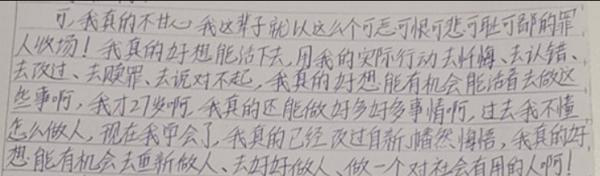 可,我真的不甘心我这辈子就以这么个可恶可恨可悲可耻可鄙的罪
人收场!我真的好想能活下去,用我的实际行动去忏悔、去认错、
去改过、去赎罪、去说对不起,我真的好想能有机会能活着去做这
些事啊,我才27岁啊,我真的还能做好多好多事情啊,过去我不懂
怎么做人,现在我学会了,我真的已经改过自新幡然悔悟,我真的好
想能有机会去重新做人、去好好做人、做一个对社会有用的人啊!